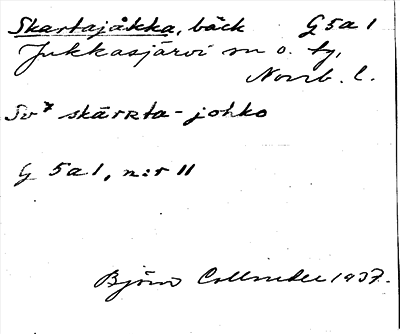 Skartajåkka, bäck G 5 a 1
Jukkasjärvi sn o. tg,
Norrb. l.
Sv* skärrta-johko
G 5a1, n:r 11
Björn Collinder 1937.